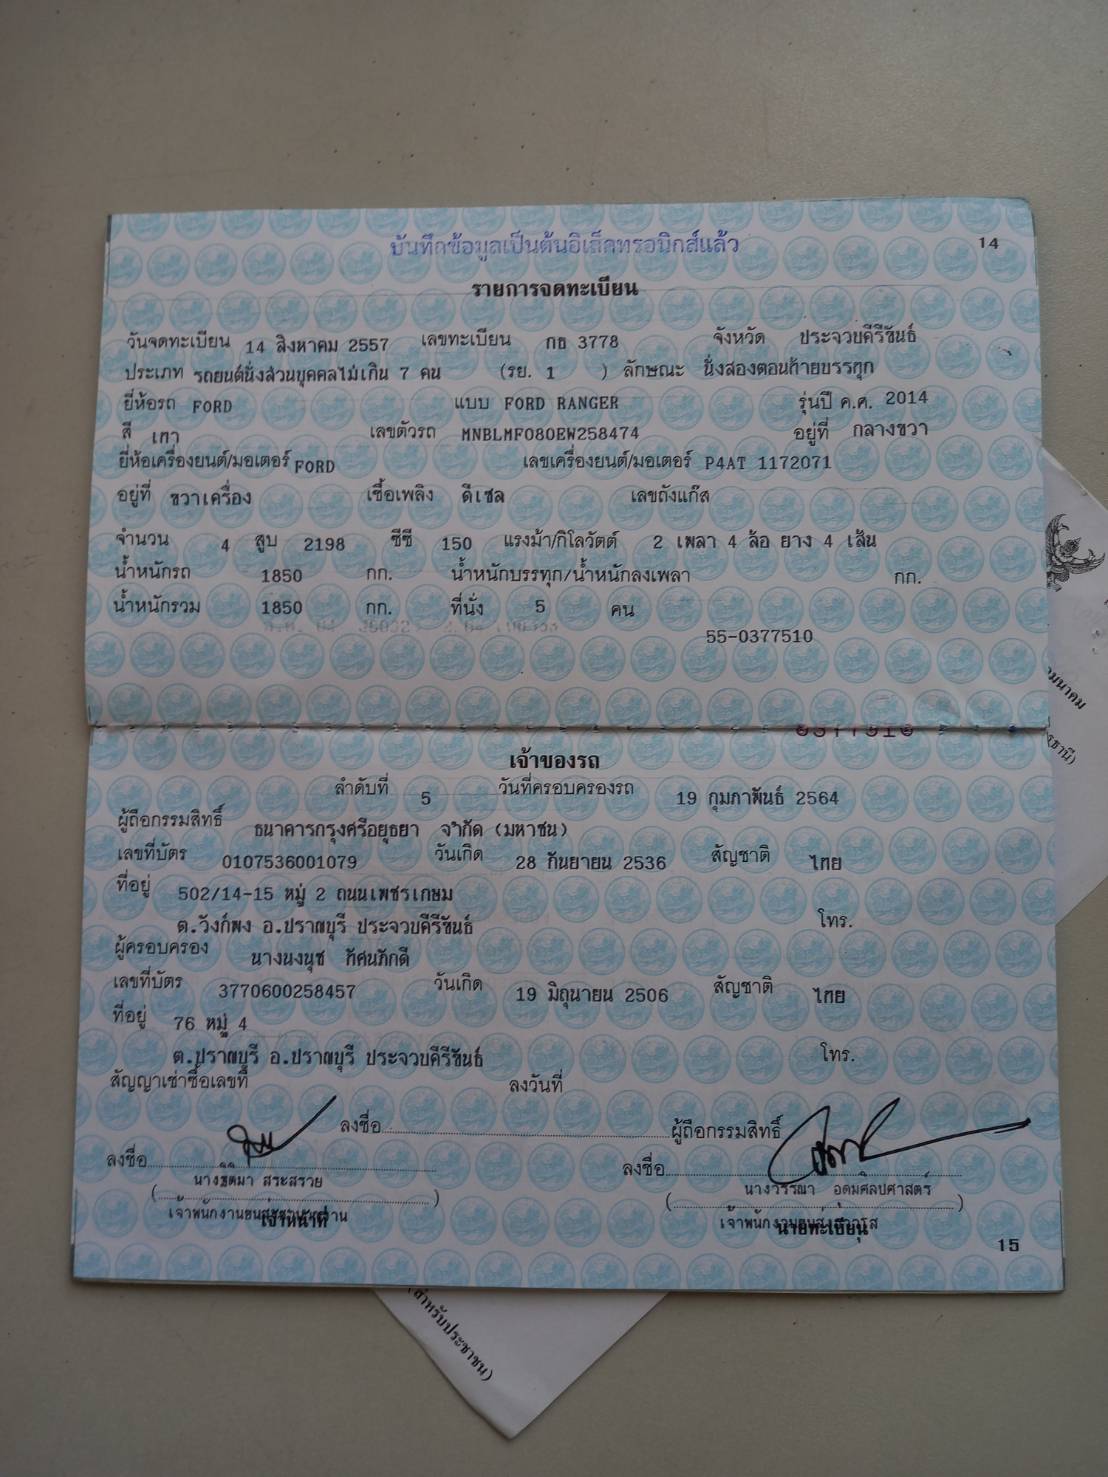 บันทึกข้อมูลเป็นต้นอิเล็คทรอนิกส์แล้ว
14
รายการจดทะเบียน
วันจดทะเบียน 14 สิงหาคม 2557 เลขทะเบียน กธ 3778 จังหวัด ประจวบคีรีขันธ์
ประเภท รถยนต์นั่งส่วนบุคคลไม่เกิน 7 คน (รย. 1 ) ลักษณะ นั่งสองตอนท้ายบรรทุก
ยี่ห้อรถ FORD แบบ FORD RANGER รุ่นปี ค.ศ. 2014
สี เทา เลขตัวรถ MNBLMF080EW258474 อยู่ที่ กลางขวา
ยี่ห้อเครื่องยนต์/มอเตอร์ FORD เลขเครื่องยนต์/มอเตอร์ P4AT 1172071
อยู่ที่ ขวาเครื่อง เชื้อเพลิง ดีเซล เลขถังแก๊ส
จำนวน 4 สูบ 2198 ซีซี 150 แรงม้า/กิโลวัตต์ 2 เพลา 4 ล้อ ยาง 4 เส้น
น้ำหนักรถ 1850 กก. น้ำหนักบรรทุก/น้ำหนักลงเพลา กก.
น้ำหนักรวม 1850 กก. ที่นั่ง 5 คน
55-0377510
เจ้าของรถ
ลำดับที่ 5 วันที่ครอบครองรถ 19 กุมภาพันธ์ 2564
ผู้ถือกรรมสิทธิ์ ธนาคารกรุงศรีอยุธยา จำกัด (มหาชน)
เลขที่บัตร 0107536001079 วันเกิด 28 กันยายน 2536 สัญชาติ ไทย
ที่อยู่ 502/14-15 หมู่ 2 ถนนเพชรเกษม
ต.วังก์พง อ.ปราณบุรี ประจวบคีรีขันธ์ โทร.
ผู้ครอบครอง นางนงนุช ทัศนภักดี
เลขที่บัตร 3770600258457 วันเกิด 19 มิถุนายน 2506 สัญชาติ ไทย
ที่อยู่ 76 หมู่ 4
ต.ปราณบุรี อ.ปราณบุรี ประจวบคีรีขันธ์ โทร.
สัญญาเช่าซื้อเลขที่ ลงวันที่
ลงชื่อ ผู้ถือกรรมสิทธิ์
ลงชื่อ ลงชื่อ
นางฐิติมา สระสรวย นางวรรณา อุดมศิลปศาสตร์
( ) ( )
เจ้าหน้าที่ นายทะเบียน
15
มนาคม
(สำหรับประชาชน)